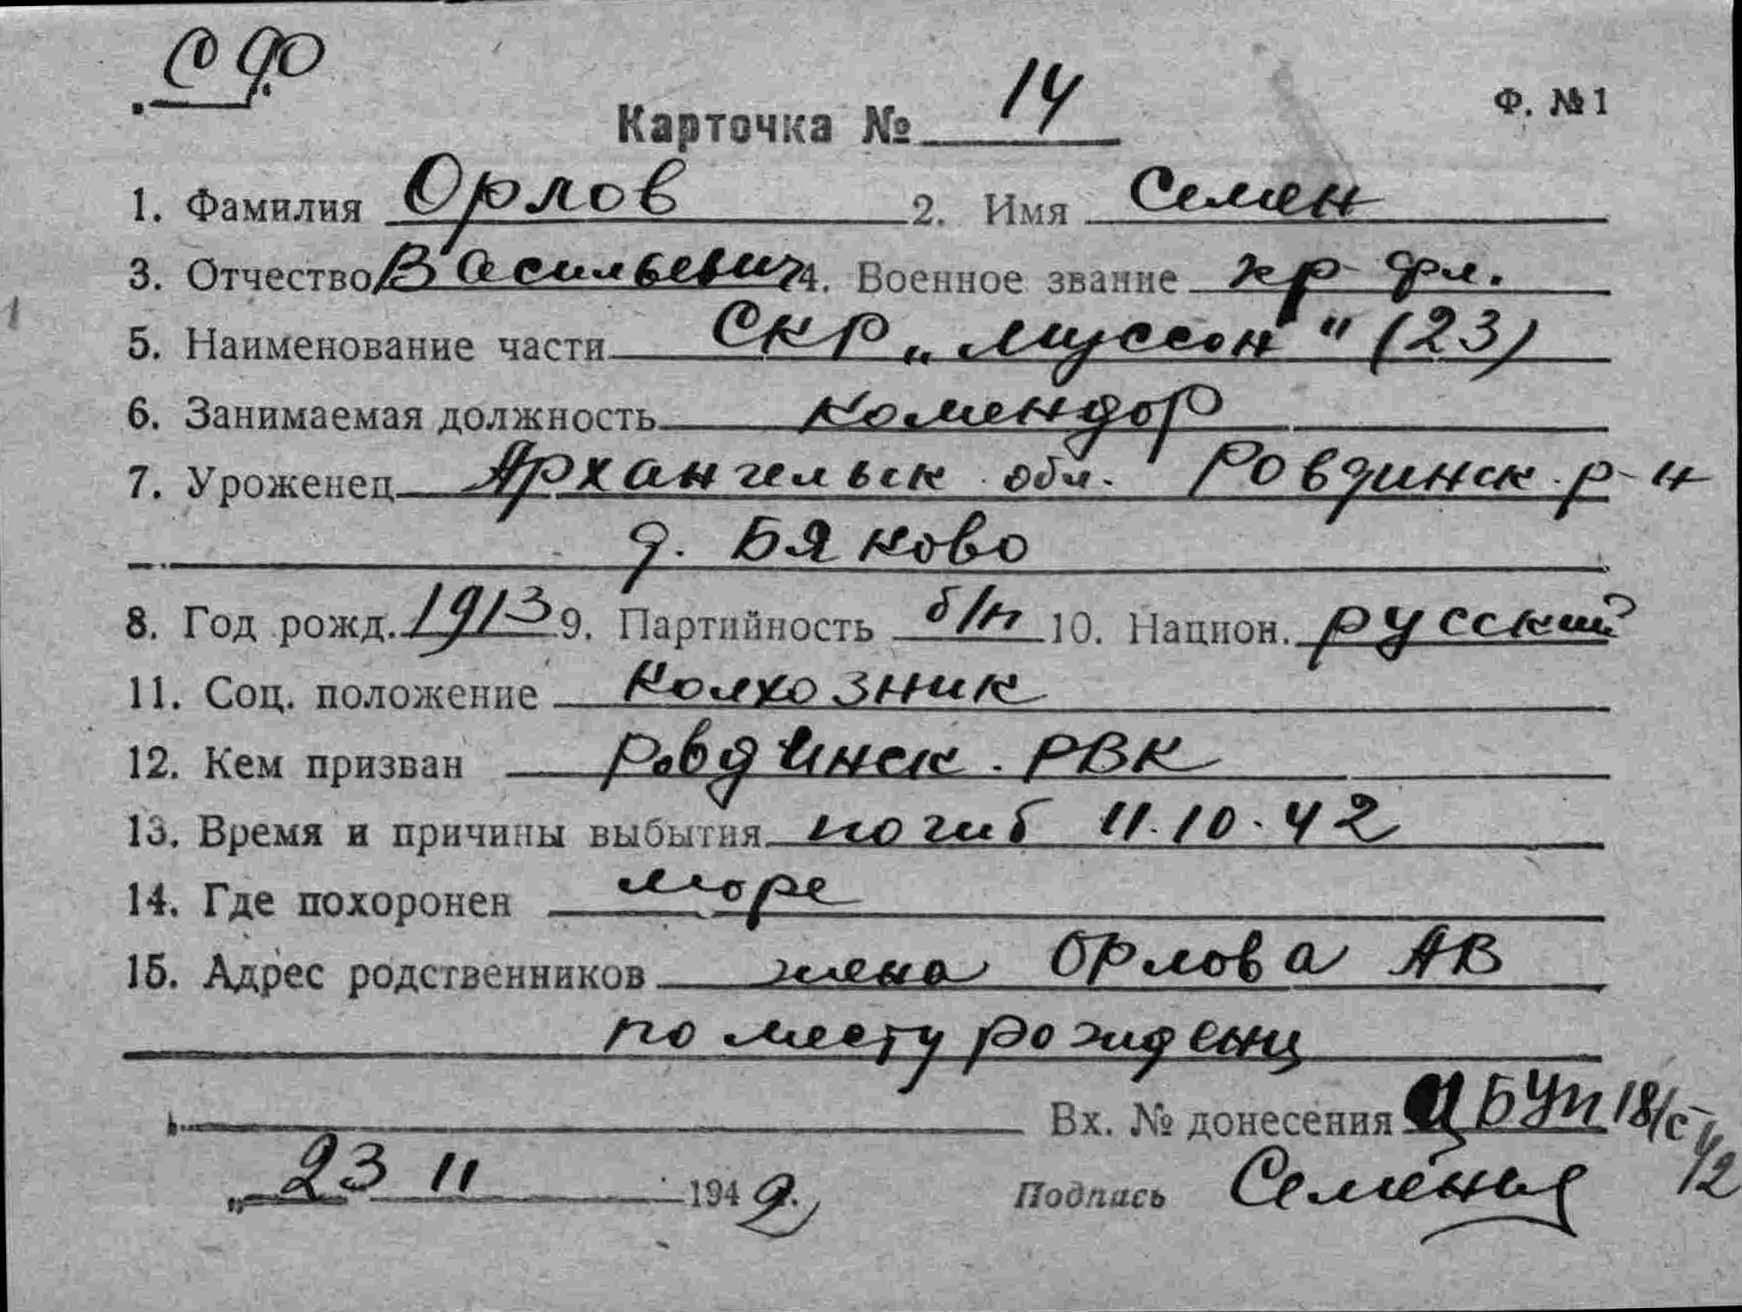 СФ
Ф. №1
Карточка № 14
1. Фамилия Орлов 2. Имя Семен
3. Отчество Васильевич 4. Военное звание кр-фл.
5. Наименование части СКР „Муссон" (23)
6. Занимаемая должность комендор
7. Уроженец Архангельск обл. Ровдинск. р-н
д. Бяково
8. Год рожд. 1913 9. Партийность б/п 10. Национ. русский
11. Соц. положение колхозник
12. Кем призван Ровдинск. РВК
13. Время и причины выбытия погиб 11.10.42
14. Где похоронен море
15. Адрес родственников жена Орлова АВ
по месту рожден
Вх. № донесения 18/с
42
„23 11 1942 Подпись